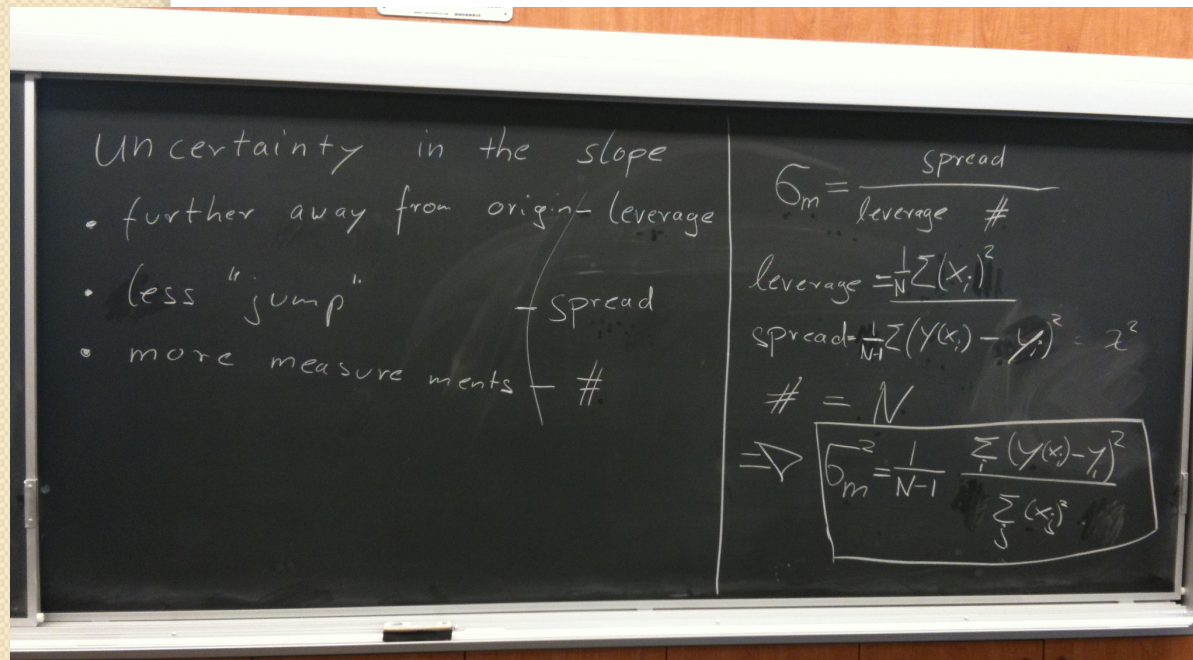 Uncertainty in the slope
• further away from origin - leverage
• less "jump" - spread
• more measurements - #
σm = spread / leverage #
leverage = 1/N Σ(xi)²
spread = 1/N-1 Σ(y(xi) - yi)² = χ²
# = N
⇒ σm² = 1/N-1 Σi (y(xi) - yi)² / Σj (xj)²